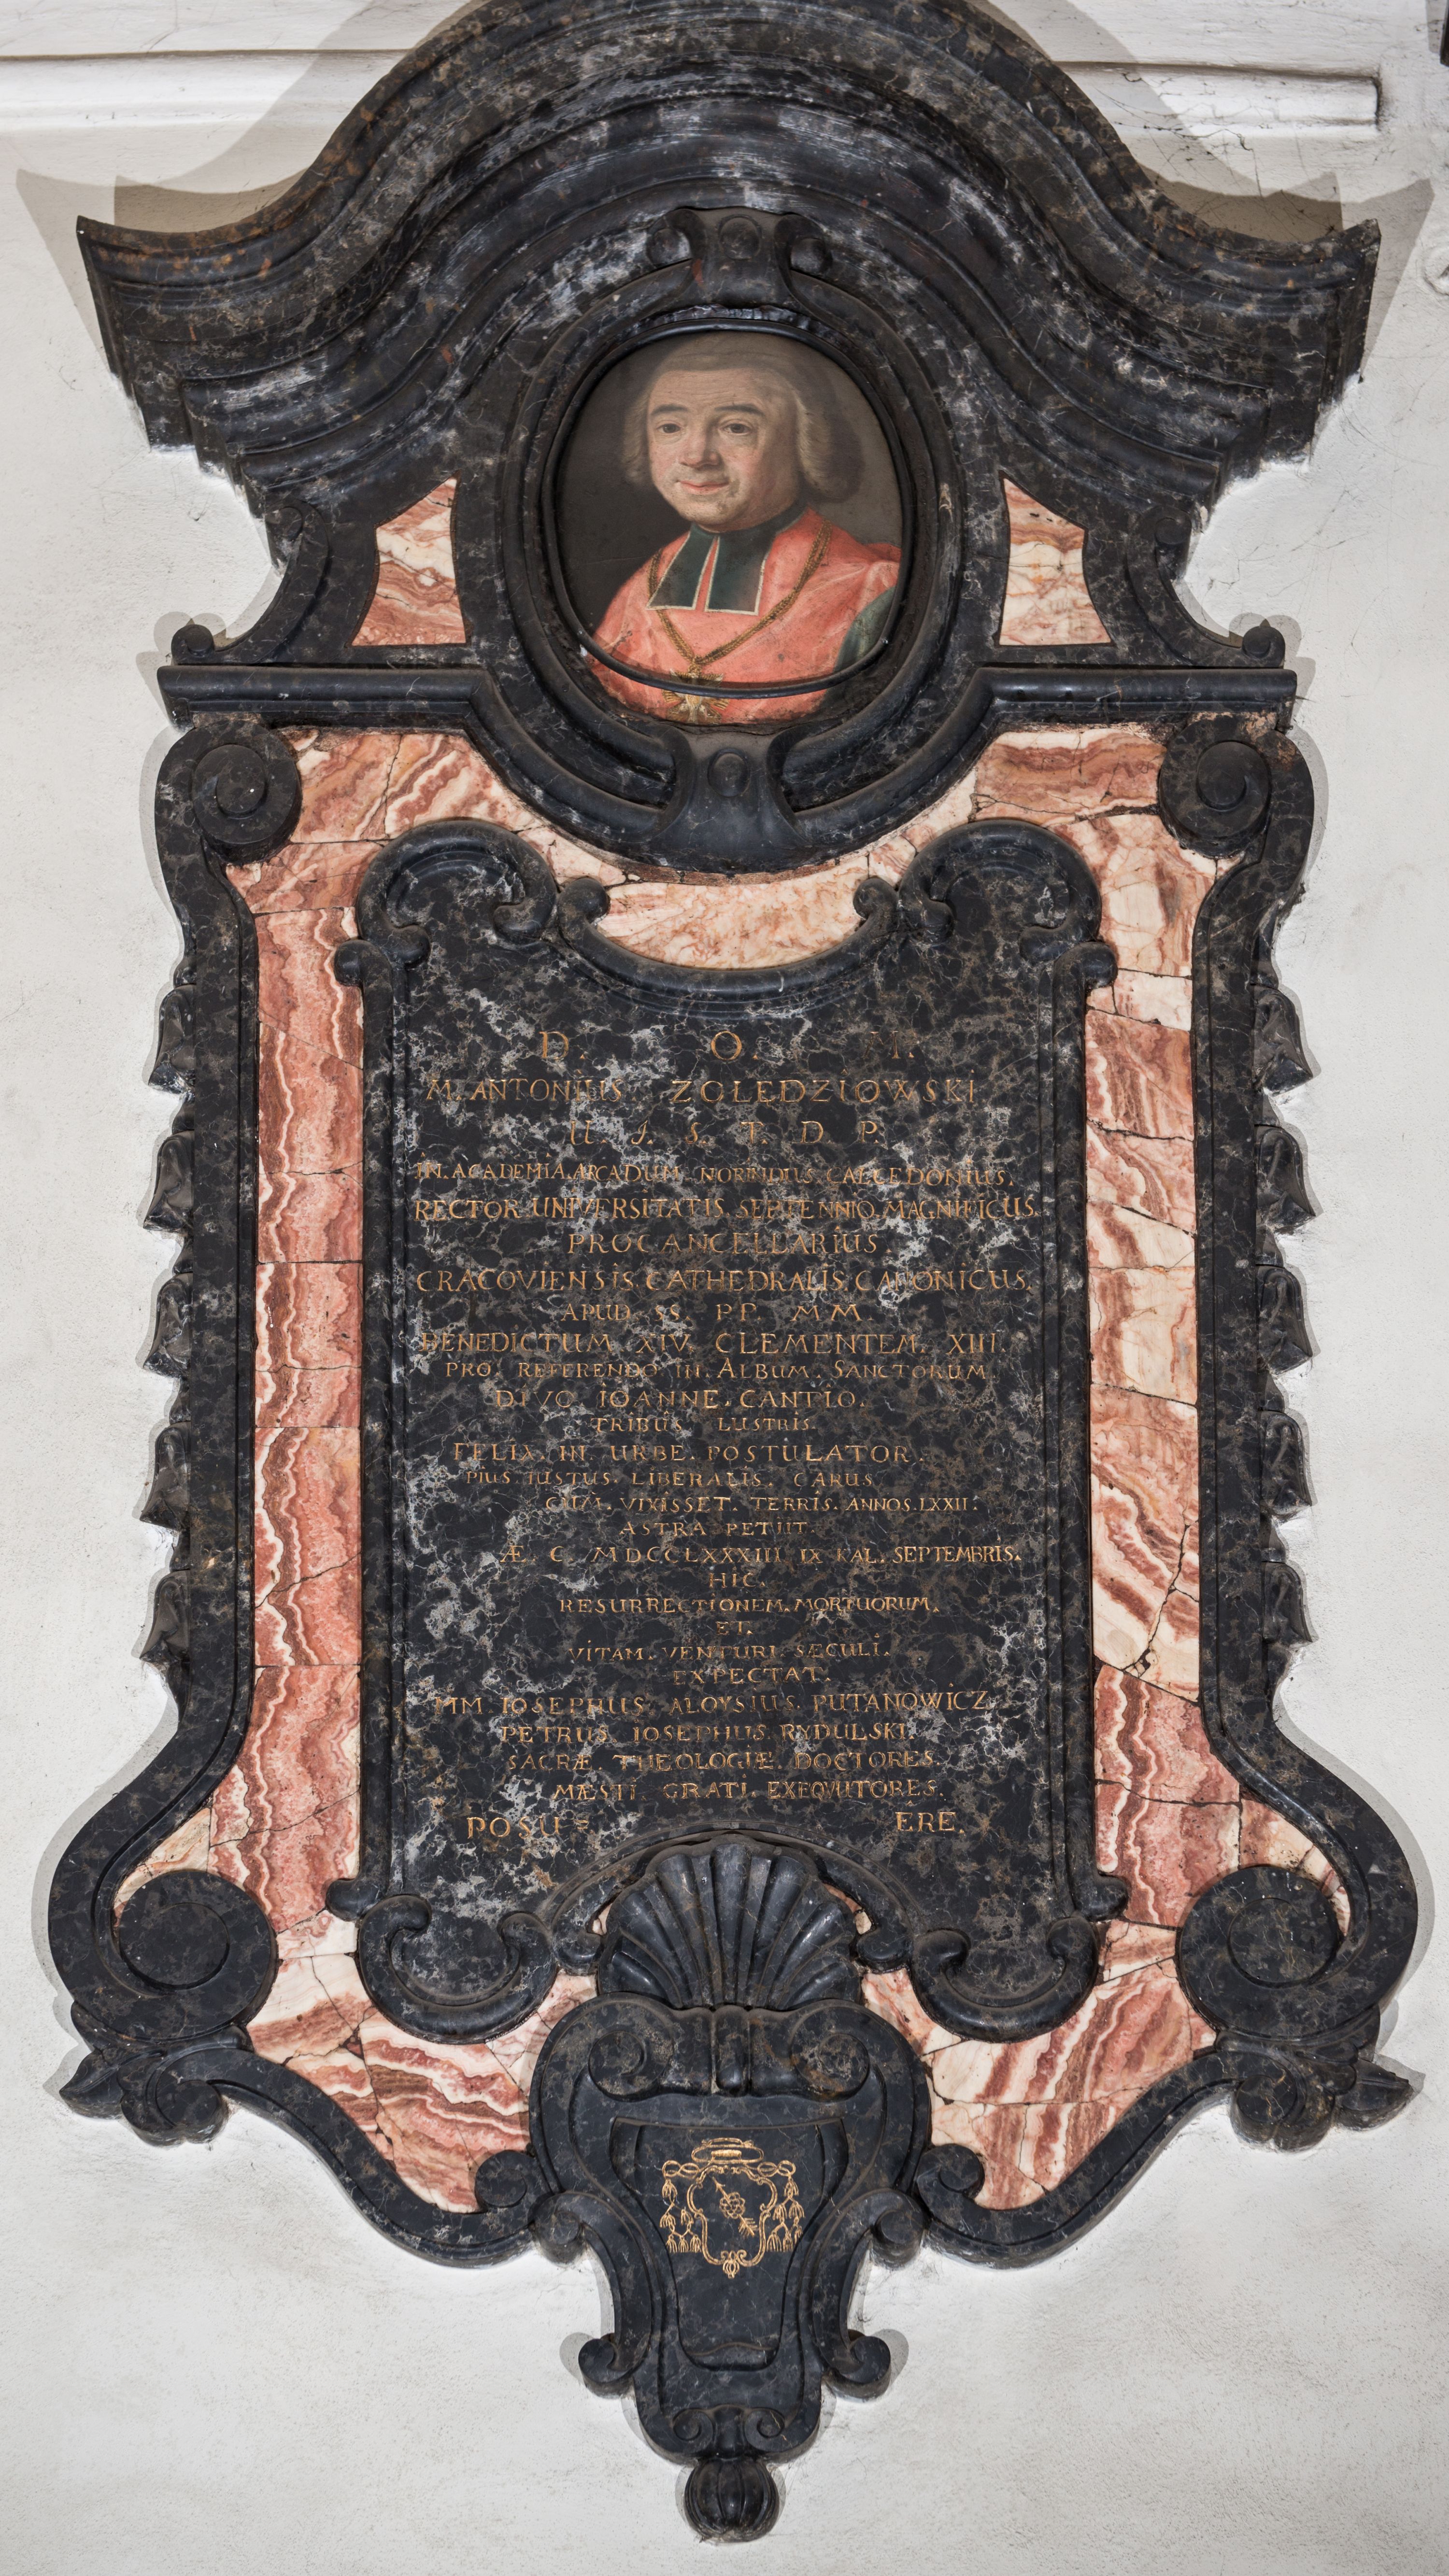 D. O. M.
M. ANTONIUS. ZOLEDZIOWSKI
U. J. S. T. D. P.
IN. ACADEMIA. ARCADUM CALCEDONIUS.
RECTOR. UNIVERSITATIS. SEPTENNIO. MAGNIFICUS.
PROCANCELLARIUS.
CRACOVIENSIS. CATHEDRALIS. CANONICUS.
APUD SS. PP. MM.
BENEDICTUM XIV. CLEMENTEM. XIII.
PRO. REFERENDO. IN. ALBUM. SANCTORUM.
DIVO IOANNE. CANTIO.
TRIBUS LUSTRIS.
FELIX. IN. URBE. POSTULATOR.
PIUS. IUSTUS. LIBERALIS. CARUS
CUM. VIXISSET. TERRIS. ANNOS. LXXII.
ASTRA PETIIT.
Æ. C. MDCCLXXXIII IX KAL. SEPTEMBRIS.
HIC.
RESURRECTIONEM. MORTUORUM.
ET.
VITAM. VENTURI SÆCULI.
EXPECTAT.
MM IOSEPHUS ALOYSIUS. PUTANOWICZ,
PETRUS IOSEPHUS RYDULSKI.
SACRÆ THEOLOGIÆ DOCTORES.
MÆSTI GRATI EXEQVUTORES.
POSU= ERE.